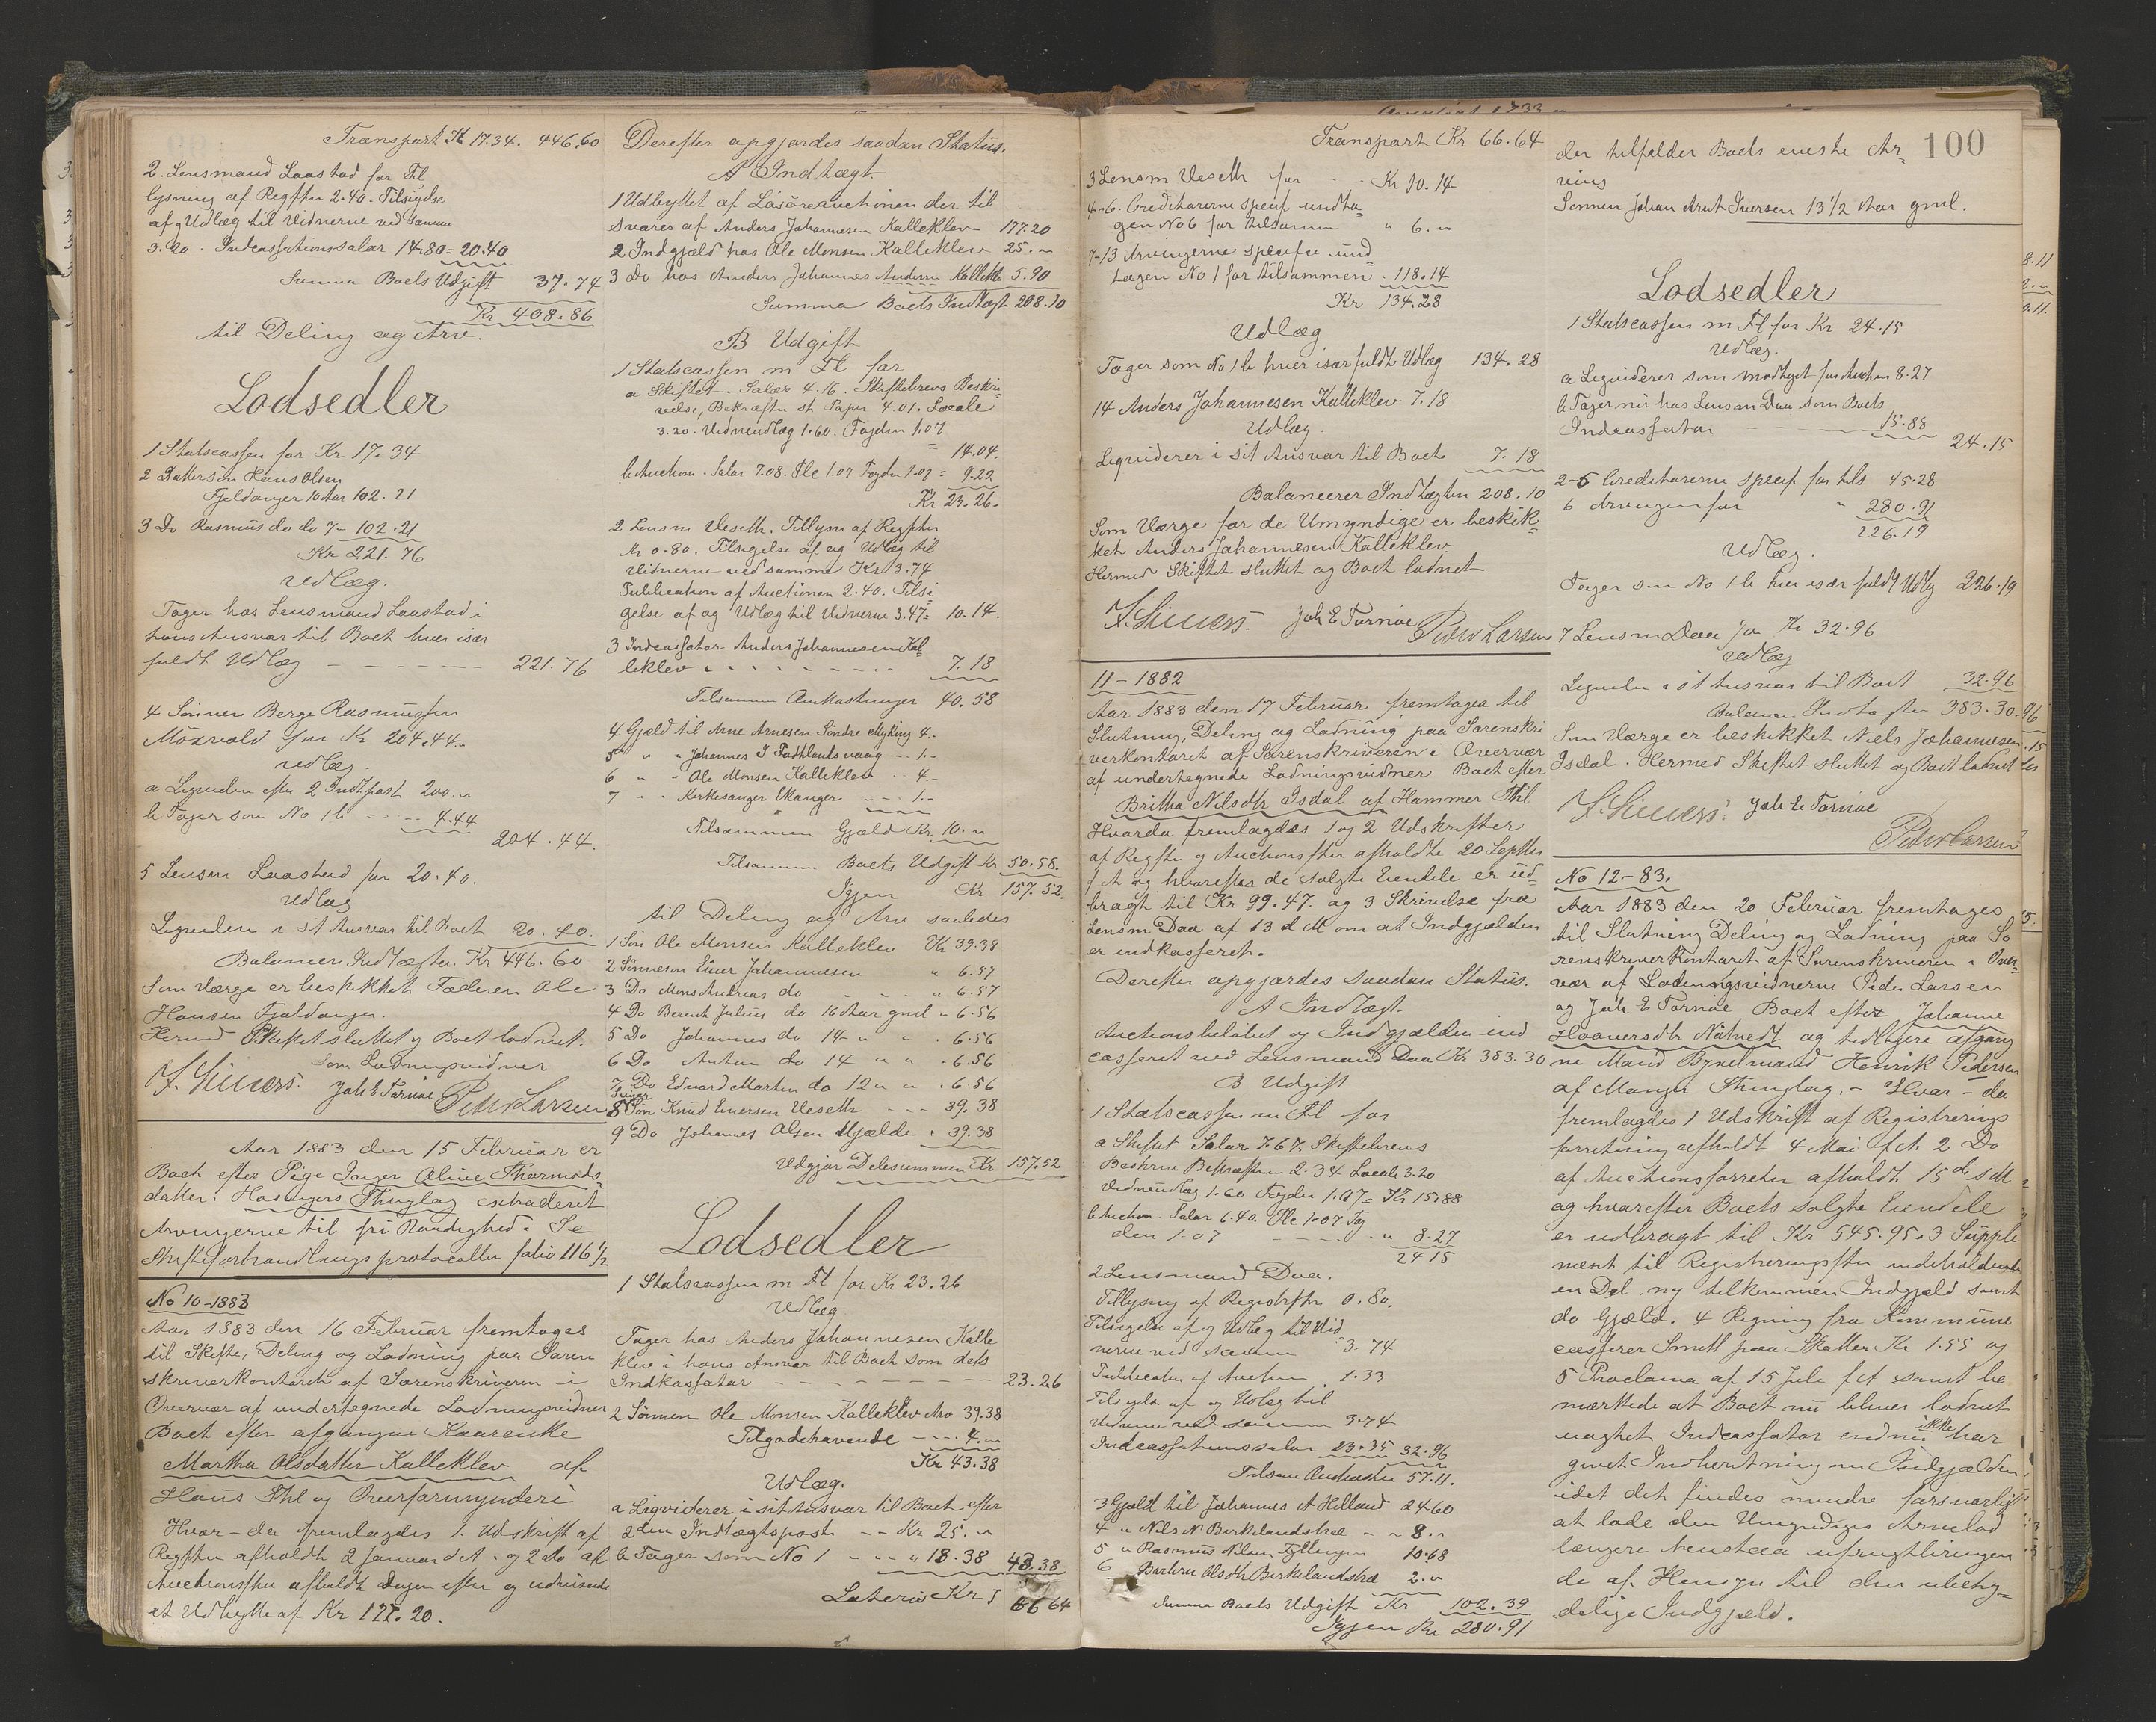 Transport Kr 17.34. 446.60
2. Lensmand Laastad for Til
lysning af Regfttn 2.40. Tilsigelse
af og Udlæg til Vidnerne ved samme
3.20. Indcassationssalær 14.80 = 20.40
Summa Boets Udgift 37.74
Kr 408.86
til Deling og Arv.
Lodsedler
1 Statscassen for Kr 17.34
2 Dattersøn Hans Olsen
Fjeldanger 10 Aar 102.21
3 Do Rasmus do do 7 – 102.21
Kr 221.76
Udlæg.
Tager hos Lensmand Laastad i
hans Ansvar til Boet hver især
fuldt Udlæg – – – – – 221.76
4 Sønnen Berge Rasmussen
Moxvold for Kr 204.44.
Udlæg.
a Ligviderer efter 2 Indtpost 200.„
b Tager som No 1 b – – – 4.44
204.44.
5 Lensm Laastad for 20.40.
Udlæg
Ligviderer i sit Ansvar til Boet 20.40.
Balancerer Indtægten. Kr 446.60
Som Værge er beskikket Faderen Ole
Hansen Fjeldanger.
Hermed Skiftet sluttet og Boet lodnet.
som Lodningsvidner
F. Siewers. Joh E Tornøe Peder Larsen
Aar 1883 den 15 Februar er
Boet efter Pige Inger Oline Thormods
datter i Hosangers Thinglag extraderet
Arvingerne til fri Raadighed. Se
Skifteforhandlingsprotocollen folio 116 1/2
No 10–1883
Aar 1883 den 16 Februar fremtages
til Skifte, Deling og Lodning paa Soren
skriverkontoret af Sorenskriveren i
Overvær af undertegnede Lodningsvidner
Boet efter afgangne Kaarenke
Martha Olsdatter Kalleklev af
Haus Thl og Overformynderi
Hvor – da fremlagdes 1. Udskrift af
Regfttn afholdt 2 Januar d A. og 2 Do af
Auctionsfttn afholdt Dagen efter og udvisende
et Udbytte af Kr 177.20.
Derefter opgjordes saadan Status.
A Indtægt.
1 Udbyttet af Løsøreauctionen der til
svares af Anders Johannesen Kalleklev 177.20
2 Indgjæld hos Ole Monsen Kalleklev 25.„
3 Do hos Anders Johannes Andersen Kallekle 5.90
Summa Boets Indtægt 208.10
B Udgift
1 Statscassen m Fl for
a Skiftet. Salær 4.16. Skiftebrevs Beskri
velse, Bekræftn st Papir 4.01. Locale
3.20. Vidneudlæg 1.60. Fogden 1.07
= 14.04.
b Auction. Salær 7.08. Fle 1.07 Fogden 1.07 = 9.22
Kr 23.26.
2 Lensm Veseth. Tillysn af Regfttn
Kr 0.80. Tilsigelse af og Udlæg til
Vidnerne ved samme Kr 3.74
Publication af Auctionen 2.40. Tilsi
gelse af og Udlæg til Vidnerne 3.47 = 10.14.
3 Indcassator Anders Johannesen Kal
leklev – – – – – – – 7.18
Tilsammen Omkostninger 40.58
4 Gjæld til Arne Arnesen Søndre Myking 4.
5 „ „ Johannes I Fadtlandsvaag – – 1.–
6 „ „ Ole Monsen Kalleklev – – 4.–
7 „ „ Kirkesanger Manger – – – 1.–
Tilsammen Gjæld Kr 10.„
Tilsammen Boets Udgift Kr 50.58.
Igjen Kr 157.52.
til Deling og Arv saaledes
1 Søn Ole Monsen Kalleklev Kr 39.38
2 Sønnesøn Einer Johannesen „ 6.57
3 Do Mons Andreas do – – – „ 6.57
4 Do Berent Julius do 16 Aar gml „ 6.56
5 Do Johannes do 14 „ „ . 6.56
6 Do Anton do 14 „ „ . 6.56
7 Do Edvard Martin do 12 „ „ . 6.56
8 Søn Knud Iversen Veseth – – – 39.38
9 Do Johannes Olsen Mjelde . 39.38
Udgjør Delesummen Kr 157.52
Lodsedler
1 Statscassen m Fl for Kr 23.26
Udlæg
Tager hos Anders Johannesen Kalle
klev i hans Ansvar til Boet som dets
Indkassator – – – – – – – 23.26
2 Sønnen Ole Monsen Kalleklev Arv 39.38
Tilgodehavende – – – 4.„
Kr 43.38
Udlæg.
a Ligviderer i sit Ansvar til Boet efter
2den Indtægtspost – – Kr 25.„
b Tager som No 1 – – – „ 18.38 43.38
Lateris Kr 66 64
Transport Kr 66.64
3 Lensm Veseth for – – Kr 10.14
4–6. Creditorerne specif undta
gen No 6 for tilsammen „ 6.„
7–13 Arvingerne specifice und
tagen No 1 for tilsammen . 118.14
Kr 134.28
Udlæg
Tager som No 1 b hver især fuldt Udlæg 134.28
14 Anders Johannesen Kalleklev 7.18
Udlæg.
Ligviderer i sit Ansvar til Boet 7.18
Balancerer Indtægten 208.10
Som Værge for de Umyndige er beskik
ket Anders Johannesen Kalleklev.
Hermed Skiftet sluttet og Boet lodnet
F. Siewers. Joh E Tornøe Peder Larsen
11 – 1882
Aar 1883 den 17 Februar fremtages til
Slutning, Deling og Lodning paa Sorenskri
verkontoret af Sorenskriveren i Overvær
af undertegnede Lodningsvidner Boet efter
Britha Nilsdtr Isdal af Hammer Thl
Hvorda fremlagdes 1 og 2 Udskrifter
af Regfttn og Auctionsfttn afholdte 20 Septbr
f A og hvorefter de solgte Eiendele er ud
bragt til Kr 99.47. og 3 Skrivelse fra
Lensm Daa af 13 d M om at Indgjælden
er indkasseret.
Derefter opgjordes saadan Status.
A Indtægt.
Auctionsbeløbet og Indgjælden ind
casseret ved Lensmand Daa Kr 383.30
B Udgift
1 Statscassen m Fl for
a Skiftet Salær 7.67. Skiftebrevs
Beskriv Bekræftn 2.34 Locale 3.20
Vidneudlæg 1.60 Fogden 1.07 = Kr 15.88
b Auction. Salær 6.40. Fle 1.07. Fog
den 1.07 – – – – – „ 8.27
24 15
2 Lensmand Daa.
Tillysning af Registrfttn 0.80.
Tilsigelse af og Udlæg til Vid
nerne ved samme 3.74
Publication af Auction . 1.33
Tilsigels af og Udlæg til
Vidnerne ved samme 3.74
Indcassationssalær 23.35 32.96
Tilsam Omkostn 57.11.
3 Gjæld til Johannes A Helland 24 60
4 „ Nils N Birkelandshæ – „ 8.„
5 „ Rasmus Nilsen Fyllingen 10.68
6 Barbru Olsdtr Birkelandshæ 2.„
Summa Boets Udgift Kr 102.39
Igjen Kr 280.91
100
der tilfalder Boets eneste Ar
ving
Sønnen Johan Arnt Iversen 13 1/2 Aar gml.
Lodsedler
1 Statscassen m Fl for Kr 24.15
Udlæg.
a Ligviderer som modtaget for Auction 8.27
b Tager nu hos Lensm Daa som Boets
Indcassator – – – – 15.88
24.15
2–5 Creditorerne specif for tils 45.28
6 Arvingen for „ 280.91
226.19
Udlæg.
Tager som No 1 b hver især fuldt Udlæg 226.19
7 Lensm Daa for Kr 32.96
Udlæg
Ligvider i sit Ansvar til Boet 32.96
Balancerer Indtægten 383.30
Som Værge er beskikket Niels Johannesen
Isdal. Hermed Skiftet sluttet og Boet lodnet
F. Siewers. Joh E Tornøe
Peder Larsen
No 12–83.
Aar 1883 den 20 Februar fremtages
til Slutning Deling og Lodning paa So
renskriverkontoret af Sorenskriveren i Over
vær af Lodningsvidnerne Peder Larsen
og Joh E Tornøe Boet efter Johanne
Haaversdtr Nåtvedt og tidligere afgang
ne Mand Bynelmand Henrik Pedersen
af Manger Thinglag. – Hvor – da
fremlagdes 1 Udskrift af Registrerings
forretning afholdt 4 Mai f A. 2 Do
af Auctionsforretn afholdt 15de s M
og hvorefter Boets solgte Eiendele
er udbragt til Kr 545.95. 3 Supple
ment til Registreringsfttn indeholdende
en Del ny tilkommen Indgjæld samt
do Gjæld. 4 Regning fra Kommune
casserer Smitt paa Skatter Kr 1.55 og
5 Proclama af 15 Juli f A samt be
mærkede at Boet nu bliver lodnet
uagtet Indcassator endnu ikke har
gjevet Indberetning om Indgjælden
idet det findes mindre forsvarligt
at lade den Umyndiges Arvelod
længere henstaa ufrugtbringen
de af Hensyn til den ubety
delige Indgjæld.